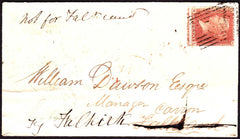 Not for Falkland
William Dawson Esqre
Manager Carron
Try Falkirk